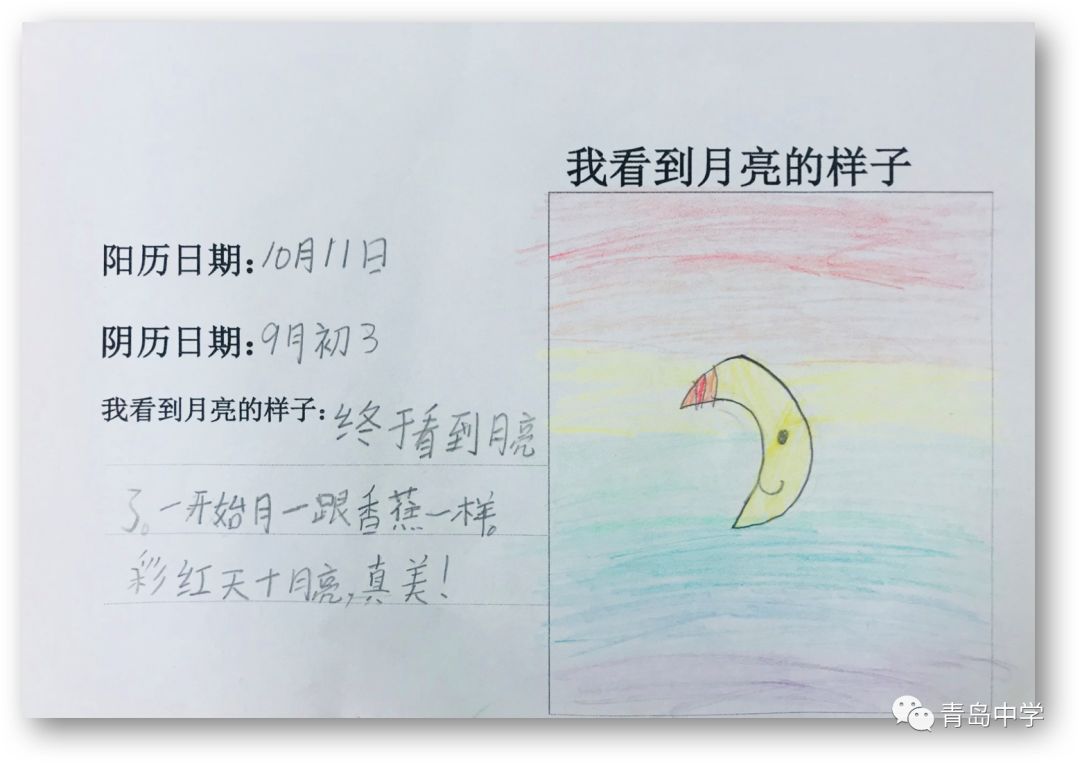 我看到月亮的样子
阳历日期:10月11日
阴历日期:9月初3
我看到月亮的样子:终于看到月亮
了。一开始月一跟香蕉一样。
彩红天十月亮,真美!
青岛中学